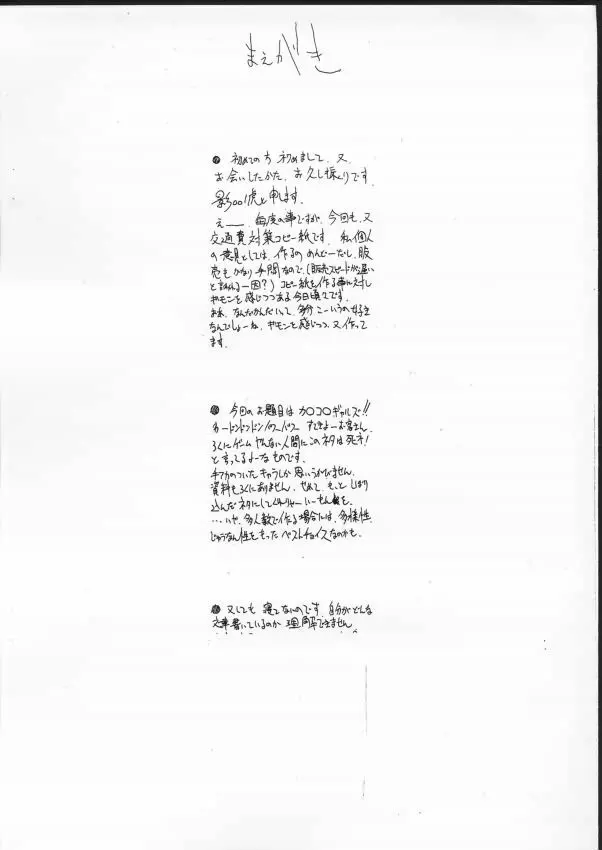 まえがき
● 初めての方 初めまして、又、
お会いしたかた、お久し振りです。
影001虎と申します。
えー 毎度の事ですが、今回も、又
交通費対策コピー紙です。私個人
の意見としては、作るの めんどーだし、販
売も かなり手間なので、(販売スピードが遅い
と訴える一因?) コピー紙を作る事に対し
ギモンを感じつつある今日頃です。
まあ、なんだかんだいって、こーいうの好き
なんでしょーね、ギモンを感じつつ、又作って
ます。
● 今回のお題目は カ○コ○ギャルズ!!
すてきよーお富さん、
ろくにゲーム やんない人間にこのネタは死ネ!
と言ってるよーなものです。
チカのついたキャラしか思いうかびません。
資料もろくにありません、せめて、もっと しぼり
込んだネタにしてくれりゃー いーもんを、
…いや、多人数で作る場合には、多様性、
じゅうなん性をもった ベストチョイスなのかも。
● 又しても 寝てないのです、自分がどんな
文章書いているのか 理解できません